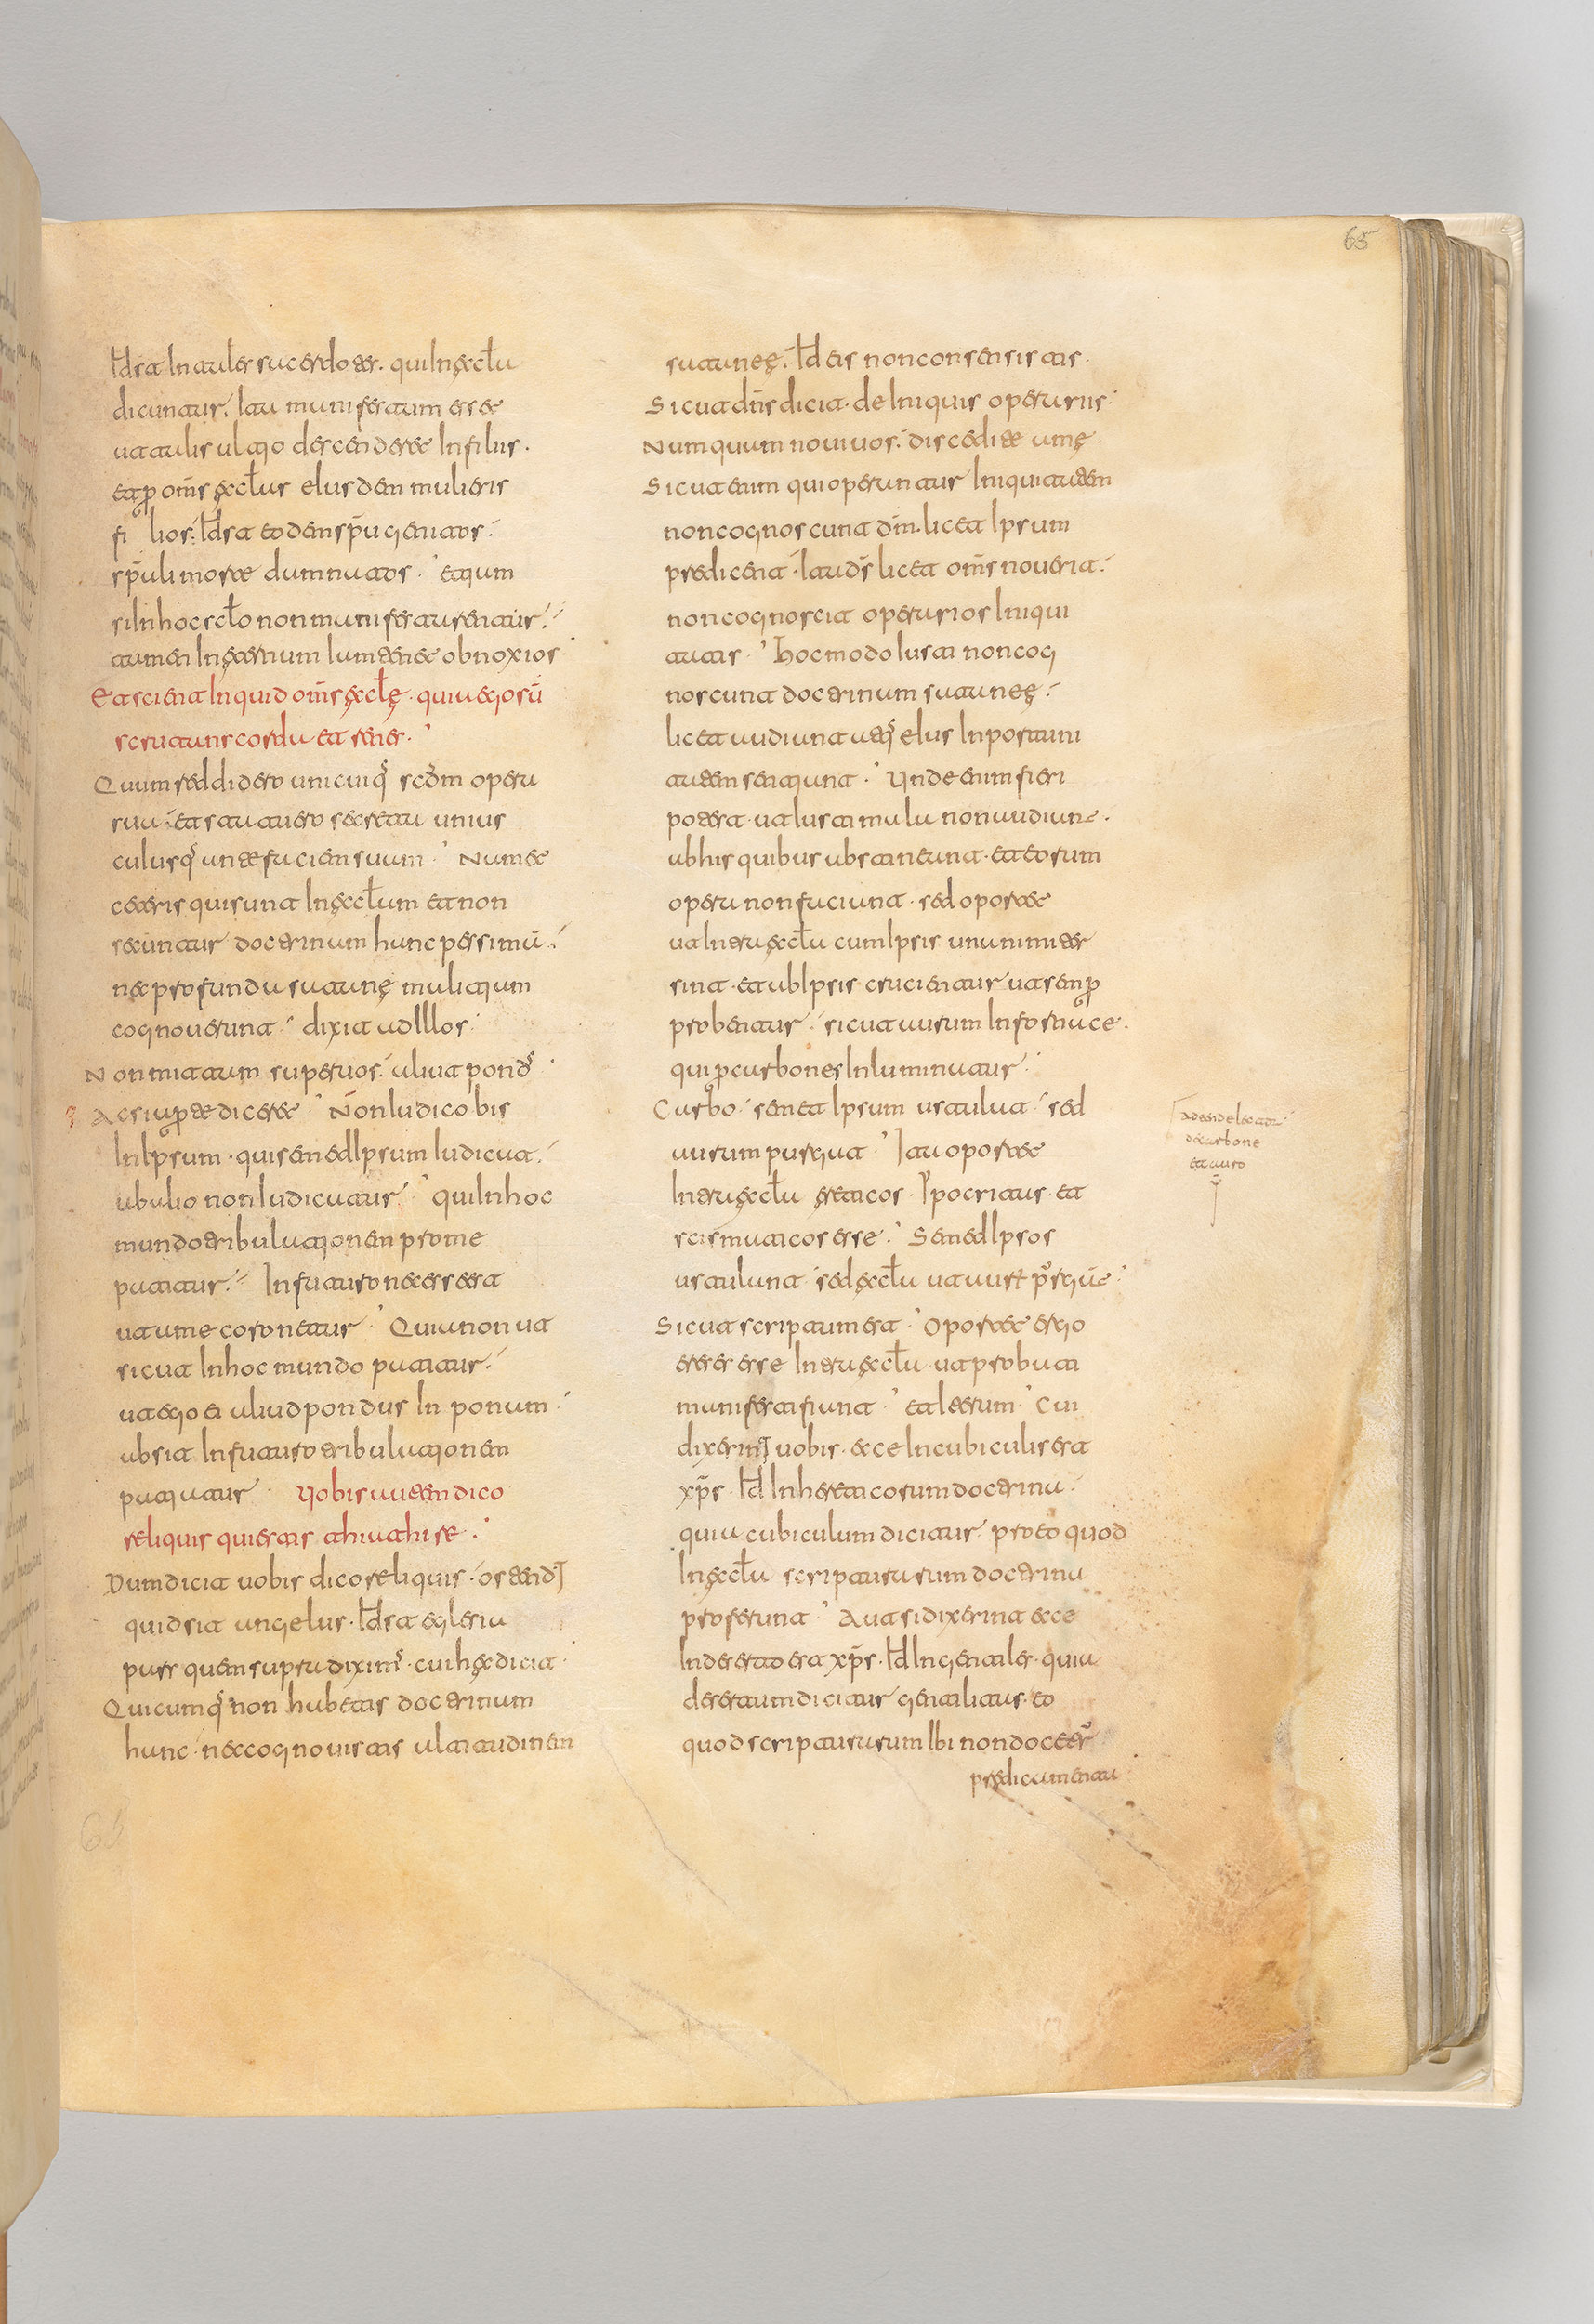 65
Idst intales sacerdotes. qui in ęcƚa
dicuntur. Ita manifestum esse
ut talis ultio descenderet in filiis.
et p̄ om̄s ęcƚas eiusdem mulieris
filios. Idst eodem sp̄u genitos.
sp̄uali morte damnatos. Etiam
si in hoc scƚo non manifestarentur.
tamen in ęternum iam tenet obnoxios
Et scient inquid om̄s ęcƚę. quia ego sū
scrutans corda et renes.
Quum reddidero unicuiq; scd̄m opera
sua. et statuero secreta unius
cuiusq; ante faciem suam. Nam et
ceteris qui sunt in ęcƚam et non
secuntur doctrinam hanc pessimā.
nec profunda satanę malitiam
cognouerunt. dixit ad illos.
Non mittam super uos. aliut pond;
Ac si ap̄te diceret. Non iudico bis
in ipsum. qui semed ipsum iudicat.
ab alio non iudicatur. qui in hoc
mundo tribulationem pro me
patitur. In futuro necesse est
ut a me coronetur. Quia non ut
sicut in hoc mundo patitur.
ut ego ei aliud pondus in ponam.
absit in futuro tribulationem
patiatur. Uobis autem dico
reliquis qui estis thiathire.
Dum dicit uobis dico reliquis. ostendit
quid sit angelus. Idst eglesia
pars quem supra dixim;. cui hęc dicit.
Quicumq; non habetis doctrinam
hanc. nec cognouistis altitudinem
sataneę. Id eis non consensistis.
Sicut dn̄s dicit. de iniquis operariis.
Numquam noui uos. discedite a me.
Sicut enim qui operantur iniquitatem
non cognoscunt dm̄. licet ipsum
predicent. Ita ds̄ licet om̄s nouerit.
non cognoscit operarios iniqui
tatis. Hoc modo iusti non cog
noscunt doctrinam sataneę.
licet audiant atq; eius inportuni
tatem sentiunt. Unde enim fieri
poterat. ut iusti mala non audiant.
ab his quibus abstinent. et eorum
opera non faciunt. sed oportet
ut intra ęcƚa cum ipsis unanimiter
sint. et ab ipsis crucientur ut semp̄
probentur. sicut aurum in fornace.
qui p̄ carbones inluminatur.
Carbo. semet ipsum ustulat. sed
aurum purgat. Ita oportet
intra ęcƚa ęreticos. ipocritas. et
scismaticos esse. Semed ipsos
ustulant. sed ęcƚa ut
Sicut scriptum est. Oportet ergo
ereses esse intra ęcƚa. ut probati
manifesti fiunt. et iterum. Cui
dixerint uobis. ecce in cubiculis est
xp̄s. Id in hereticorum doctrina.
quia cubiculum dicitur. pro eo quod
in ęcƚa scripturarum doctrina
proferunt. Aut si dixerint ecce
in deserto est xp̄s. Id in gentiles. quia
desertum dicitur gentilitas. eo
quod scripturarum ibi non docetur
predicamenta
Adtende lector
de carbone
et auro
65